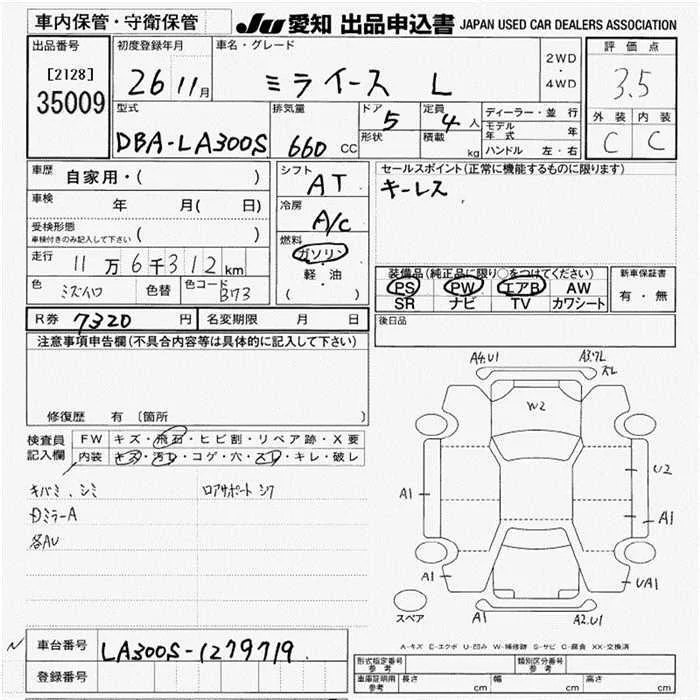 車内保管・守衛保管
JU 愛知 出品申込書 JAPAN USED CAR DEALERS ASSOCIATION
出品番号
[2128]
35009
初度登録年月
26 11月
車名・グレード
ミライース L
2WD
・
4WD
評価点
3.5
外装 内装
C C
型式
DBA-LA300S
排気量
660 CC
ドア 5
形状
定員 4 人
積載 kg
ディーラー・並行
モデル年式 年
ハンドル 左・右
車歴 自家用・( )
車検 年 月( 日)
受検形態
車検付きのみ記入して下さい ( )
走行 11万6千312km
色 ミズイロ 色替 色コード B73
シフト
AT
冷房
A/C
燃料
ガソリン
・
軽・油
( )
セールスポイント(正常に機能するものに限ります)
キーレス
装備品(純正品に限り○をつけてください)
PS PW エアB AW
SR ナビ TV カワシート
新車保証書
有・無
後日品
R券 7320 円 名変期限 月 日
注意事項申告欄(不具合内容等は具体的に記入して下さい)
修復歴 有 [箇所 ]
検査員
記入欄
FW キズ・飛石・ヒビ割・リペア跡・X要
内装 キズ・汚レ・コゲ・穴・スレ・キレ・破レ
キバミ、シミ ロアサポートシワ
DミラーA
各AU
A4.U1 A3.7L
大レ
W2
A1
U2
A1
A1
UA1
スペア
A1
A2.U1
A-キズ E-エクボ U-凹み W-補修跡 S-サビ C-腐食 XX-交換済
車台番号 LA300S-1279719
登録番号
形式指定番号
参考
類別区分番号
参考
車庫証明用
参考
長さ cm 幅 cm 高さ cm